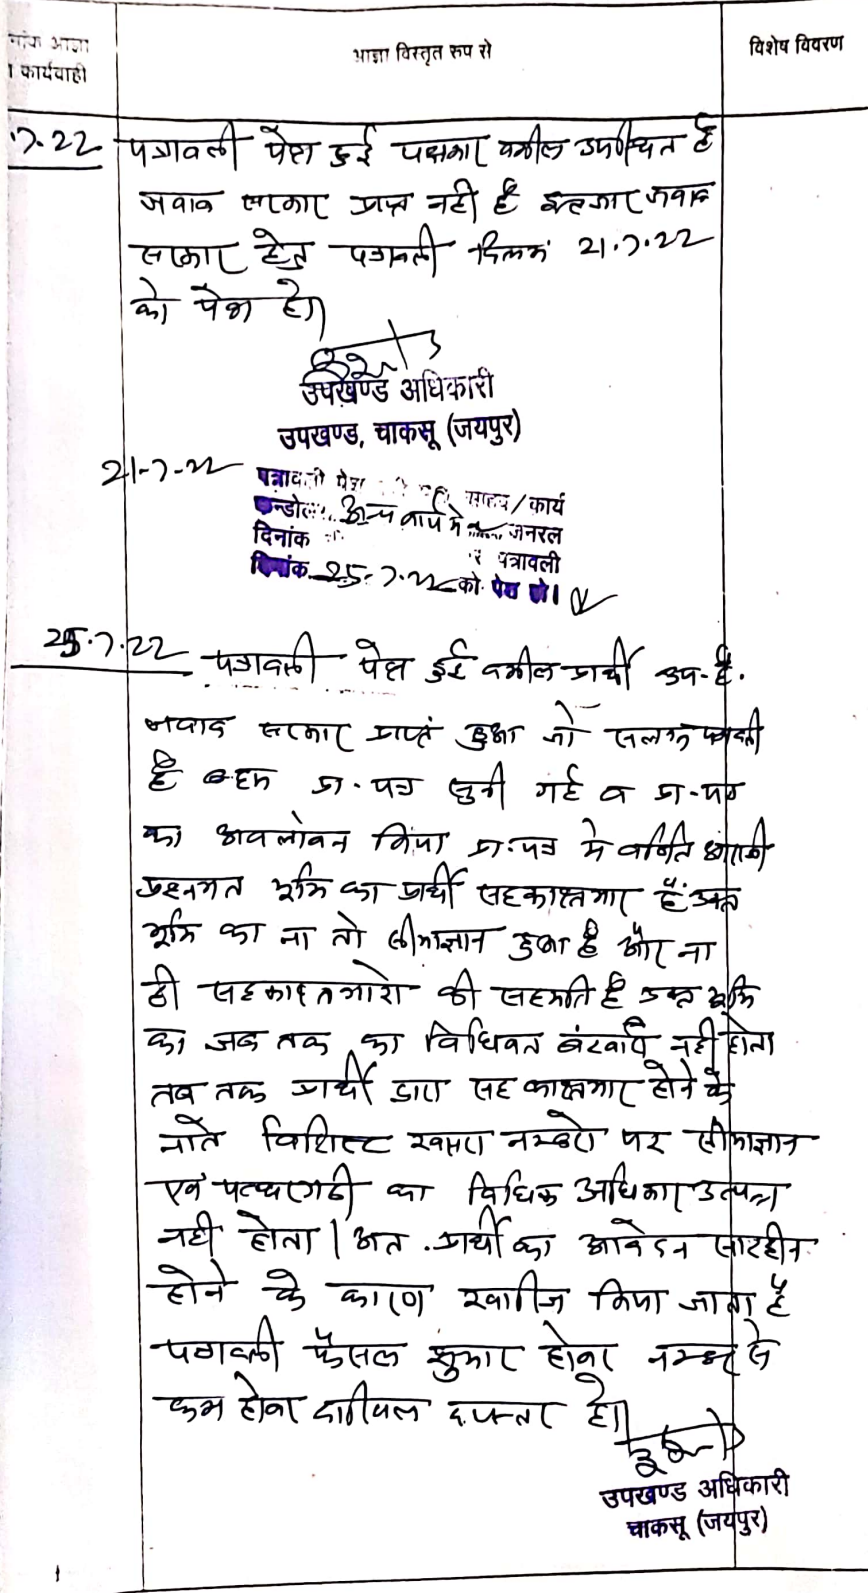 आज्ञा
कार्यवाही
आज्ञा विस्तृत रूप से
विशेष विवरण
7.22 पत्रावली पेश हुई पक्षकार वकील उपस्थित है
जवाब सरकार प्राप्त नही है जवाब
सरकार हेतु पत्रावली दिनांक 21.7.22
को पेश हो।
उपखण्ड अधिकारी
उपखण्ड, चाकसू (जयपुर)
21-7-22
पत्रावली पेश / कार्य
अन्य कार्य मे जनरल
दिनांक पत्रावली
दिनांक 25-7-22 को पेश हो।
25.7.22 पत्रावली पेश हुई वकील प्रार्थी उप-है.
जवाब सरकार प्राप्त हुआ जो सलग्न पत्रावली
है बहस प्रा.पत्र सुनी गई व प्रा-पत्र
का अवलोकन किया प्रा.पत्र मे वर्णित आराजी
प्रश्नगत भूमि का प्रार्थी सहकाश्तकार है उक्त
भूमि का ना तो सीमाज्ञान हुआ है और ना
ही सहकाश्तकारो की सहमति है उक्त भूमि
का जब तक का विधिवत बंटवारा नही होता
तब तक प्रार्थी द्वारा सह काश्तकार होने के
नाते विशिष्ट खसरा नम्बरो पर सीमाज्ञान
एवं पत्थरगढी का विधिक अधिकार उत्पन्न
नही होता। अत. प्रार्थी का आवेदन सारहीन
होने के कारण खारीज किया जाता है
पत्रावली फैसल शुमार होकर नम्बर से
कम होकर दाखिल दफ्तर हो।
उपखण्ड अधिकारी
चाकसू (जयपुर)